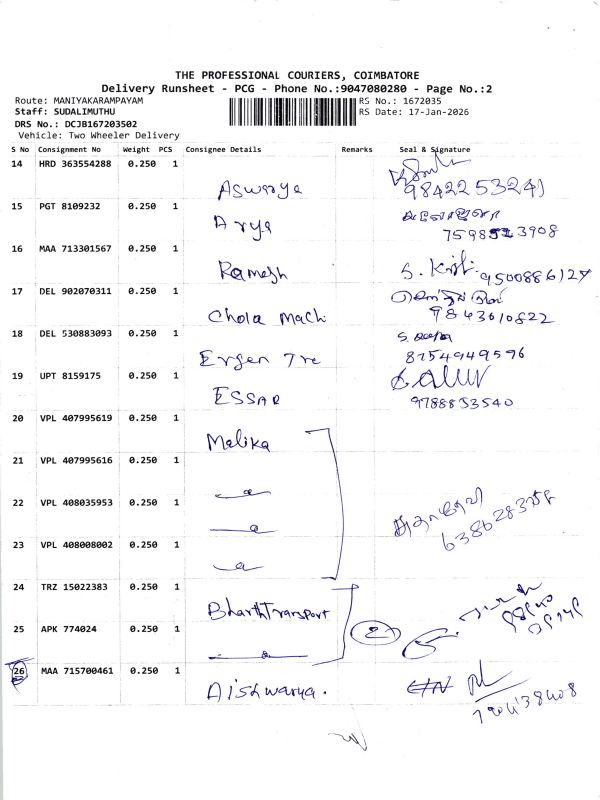 THE PROFESSIONAL COURIERS, COIMBATORE
Delivery Runsheet - PCG - Phone No.:9047080280 - Page No.:2
Route: MANIYAKARAMPAYAM
RS No.: 1672035
Staff: SUDALIMUTHU
RS Date: 17-Jan-2026
DRS No.: DCJB167203502
Vehicle: Two Wheeler Delivery
S No Consignment No Weight PCS Consignee Details Remarks Seal & Signature
14 HRD 363554288 0.250 1
Aswarya 9842253241
15 PGT 8109232 0.250 1
Arya
16 MAA 713301567 0.250 1
Ramesh S. 9500886127
17 DEL 902070311 0.250 1
Chola Machi 9843610822
18 DEL 530883093 0.250 1
8754949596
19 UPT 8159175 0.250 1
ESSAR 9788853540
20 VPL 407995619 0.250 1
Malika
21 VPL 407995616 0.250 1
22 VPL 408035953 0.250 1
23 VPL 408008002 0.250 1
24 TRZ 15022383 0.250 1
BharthTransport
2
25 APK 774024 0.250 1
26 MAA 715700461 0.250 1
Aishwarya.